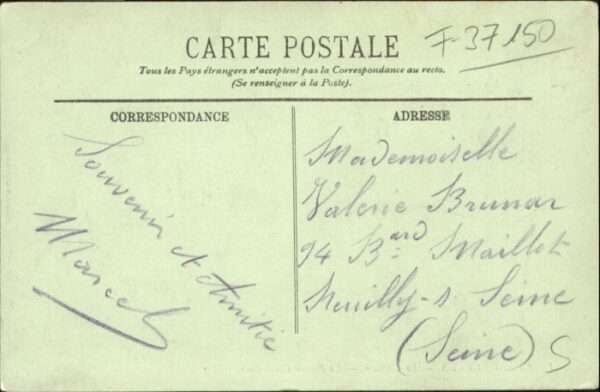 CARTE POSTALE
F-37150
Tous les Pays étrangers n'acceptent pas la Correspondance au recto.
(Se renseigner à la Poste).
CORRESPONDANCE
ADRESSE
Souvenir et Amitié
Marcel
Mademoiselle
Valerie Brunar
94 Bard Maillot
Neuilly-s Seine
(Seine)